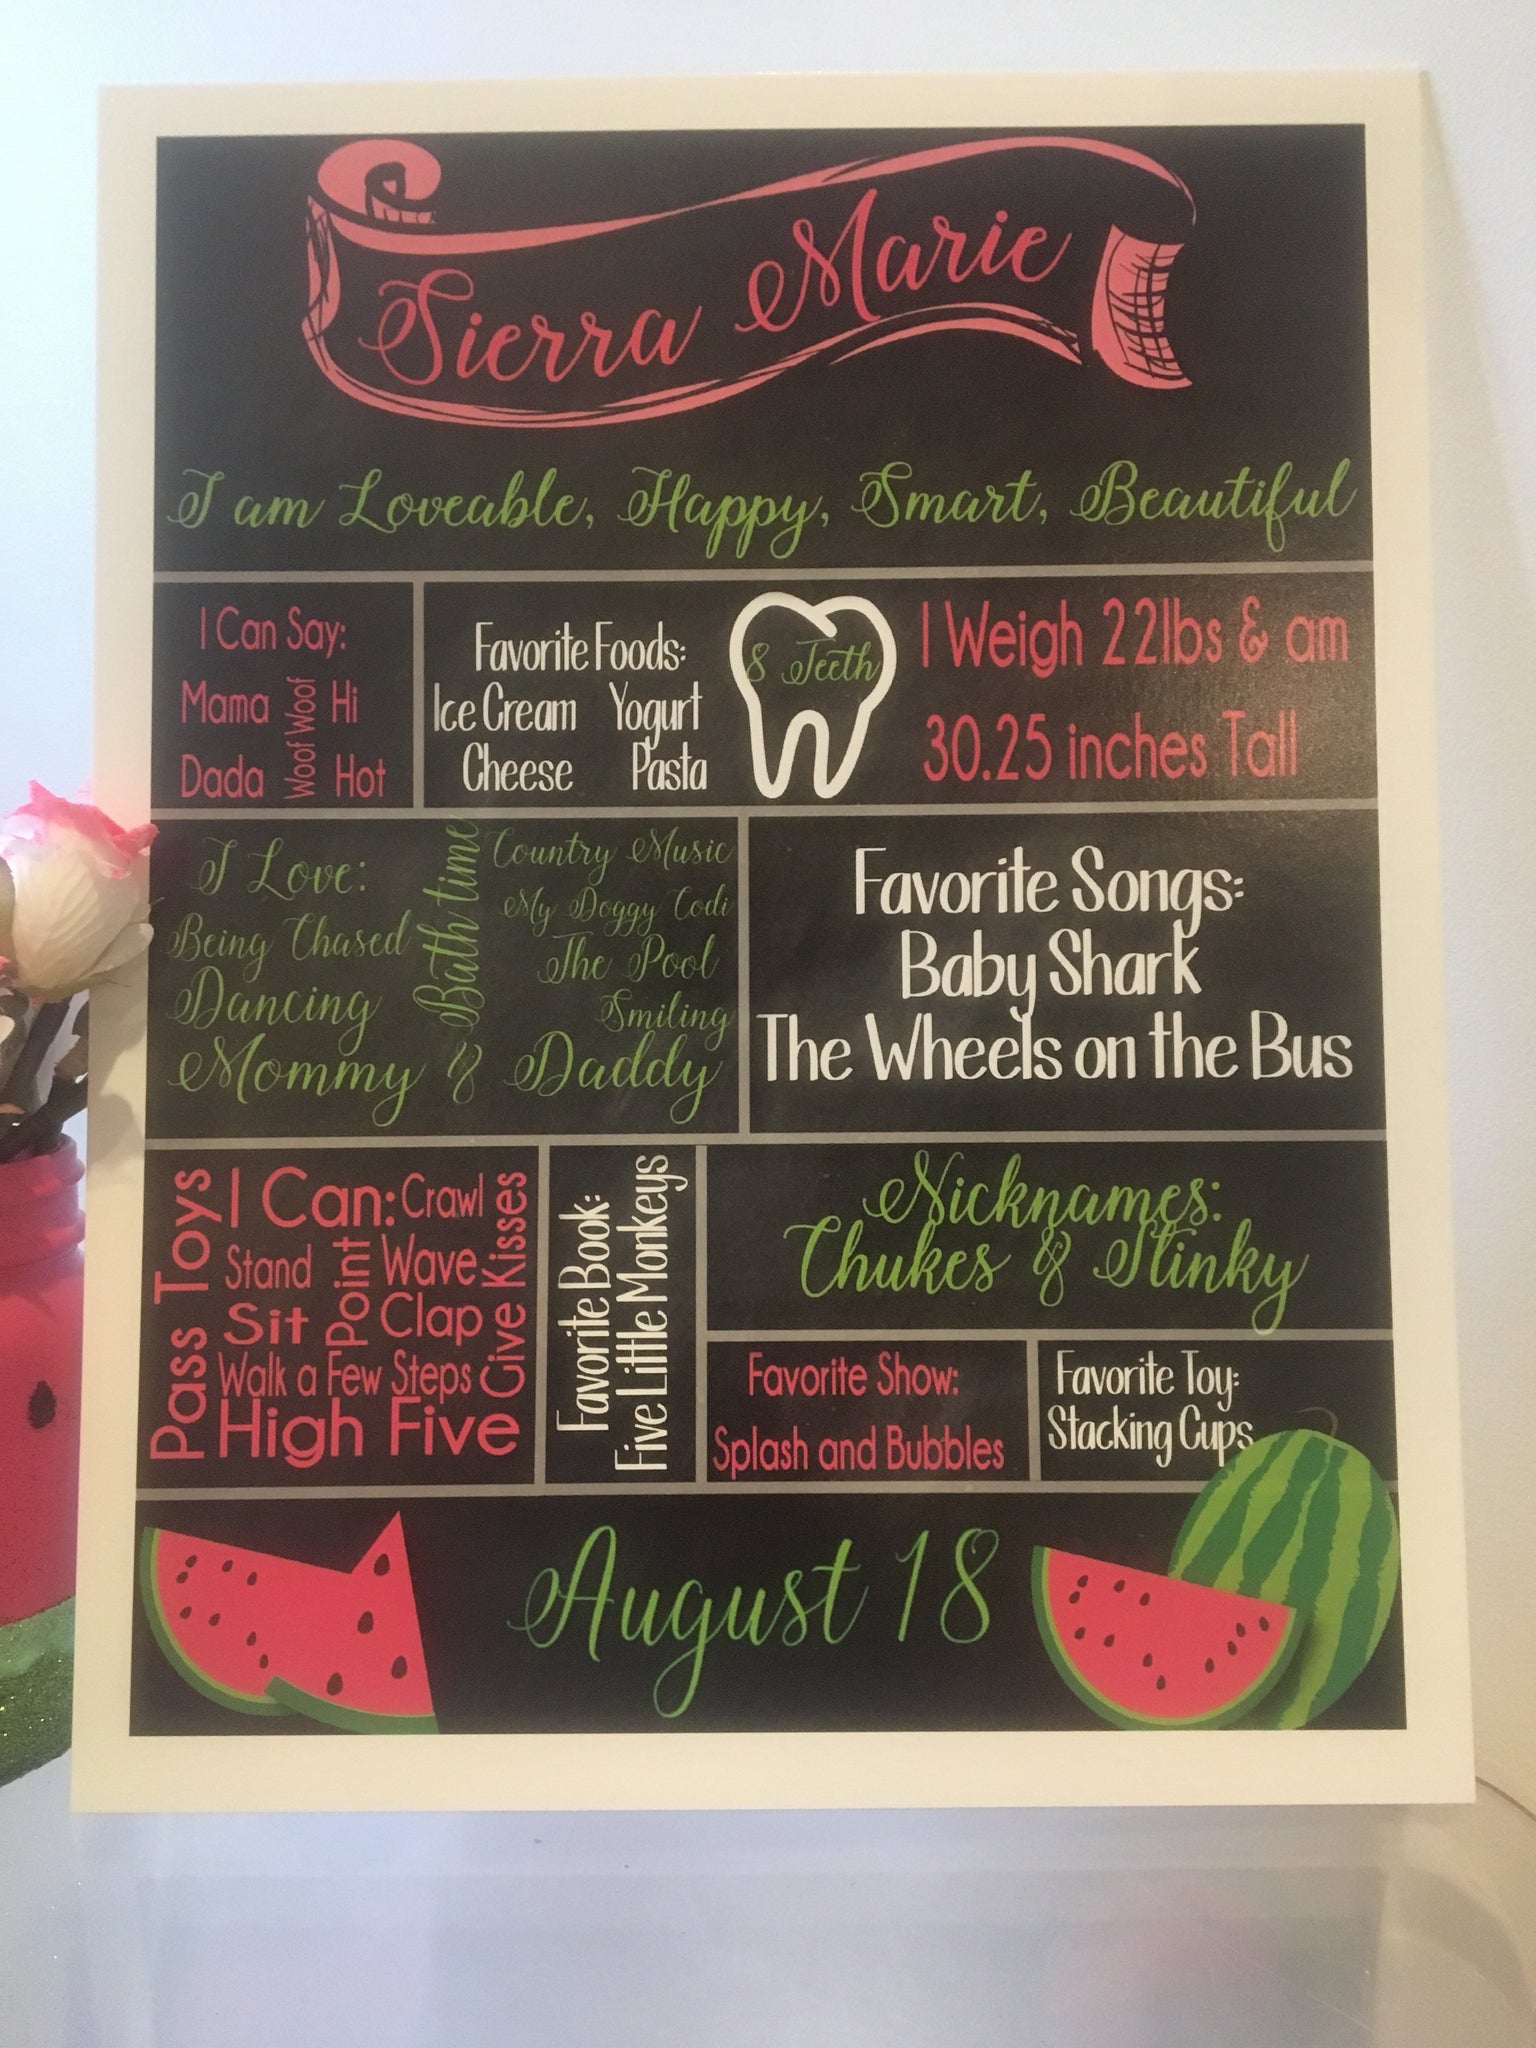 Sierra Marie
I am Loveable, Happy, Smart, Beautiful
I Can Say:
Mama
Dada
Woof Woof
Hi
Hot
Favorite Foods:
Ice Cream Yogurt
Cheese Pasta
8 Teeth
I Weigh 22lbs & am
30.25 inches Tall
I Love:
Being Chased
Dancing
Bath time
Country Music
My Doggy Codi
The Pool
Smiling
Mommy & Daddy
Favorite Songs:
Baby Shark
The Wheels on the Bus
Pass Toys
I Can: Crawl
Stand
Point
Wave
Sit
Clap
Give Kisses
Walk a Few Steps
High Five
Favorite Book:
Five Little Monkeys
Nicknames:
Chukes & Stinky
Favorite Show:
Splash and Bubbles
Favorite Toy:
Stacking Cups
August 18